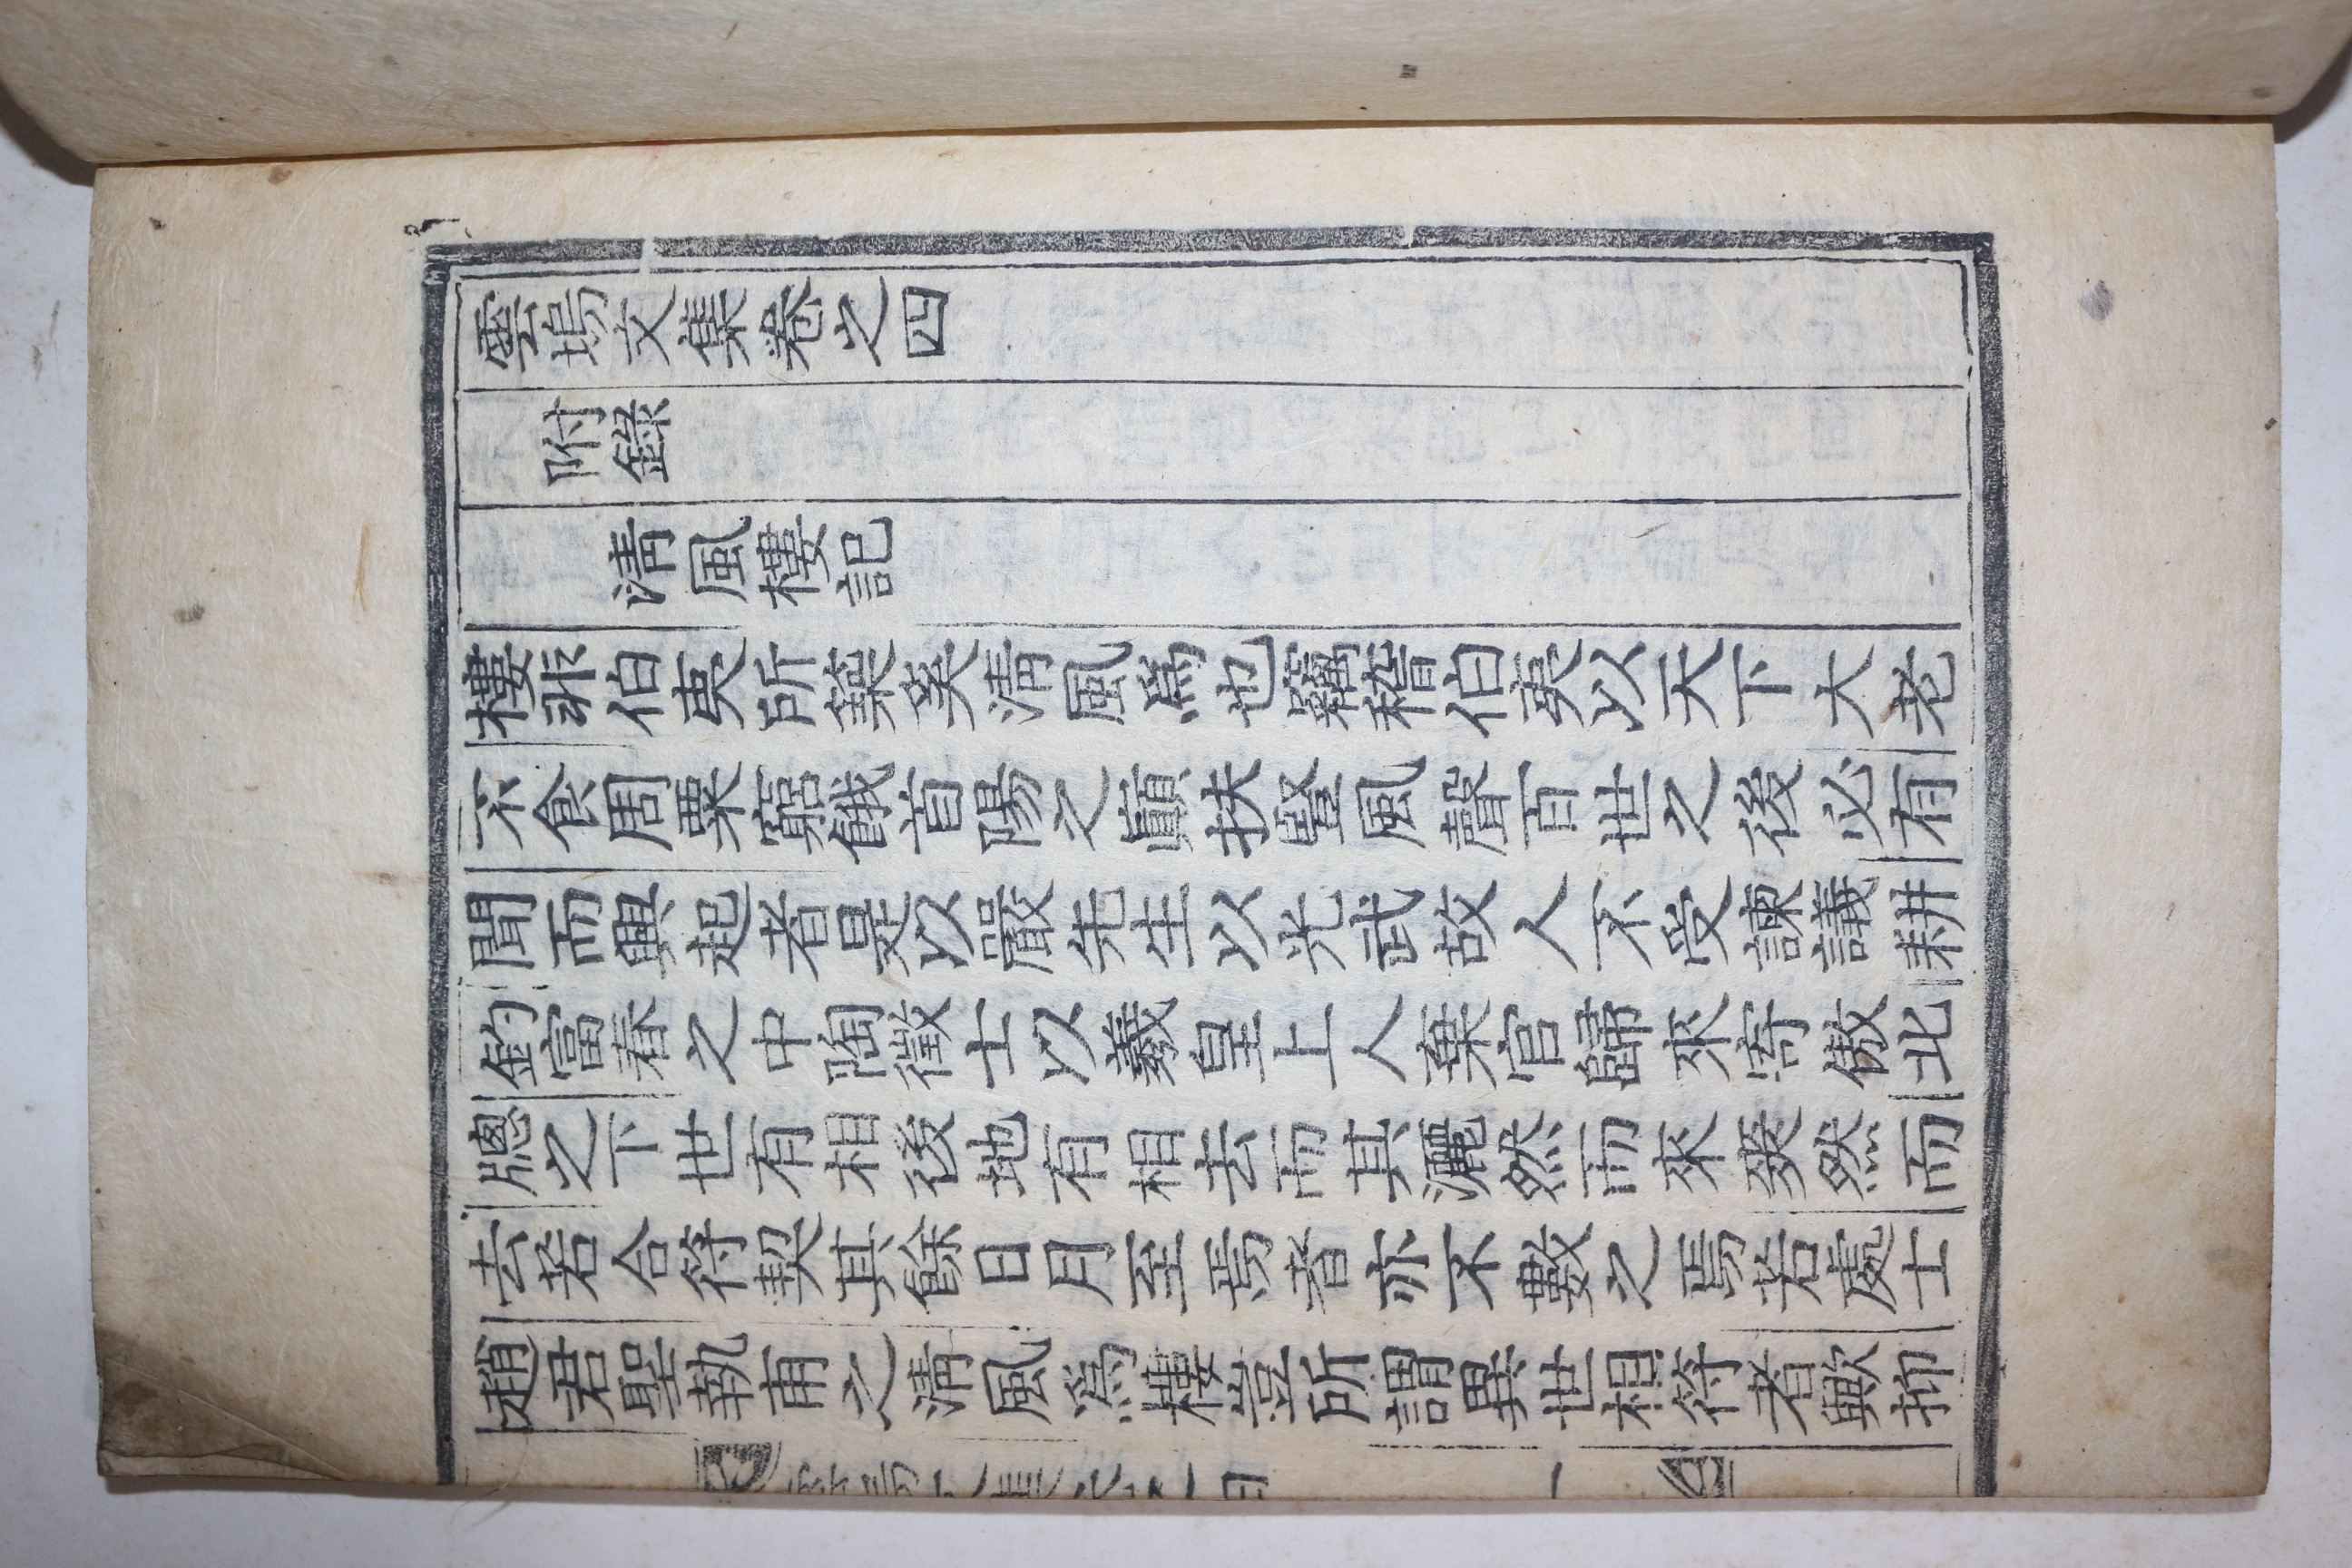 雲塢文集卷之四
附錄
清風樓記
樓非伯夷所築奚清風爲也竊稽伯夷以天下大老
不食周粟窮餓首陽之巓扶竪風聲百世之後必有
聞而興起者是以嚴先生以光武故人不受諫議耕
釣富春之中陶徵士以羲皇上人棄官歸來寄傲北
牕之下世有相後地有相去而其灑然而來發然而
去若合符契其餘日月至焉者亦不數之焉若處士
趙君聖執甫之清風爲樓豈所謂異世相符者歟抑